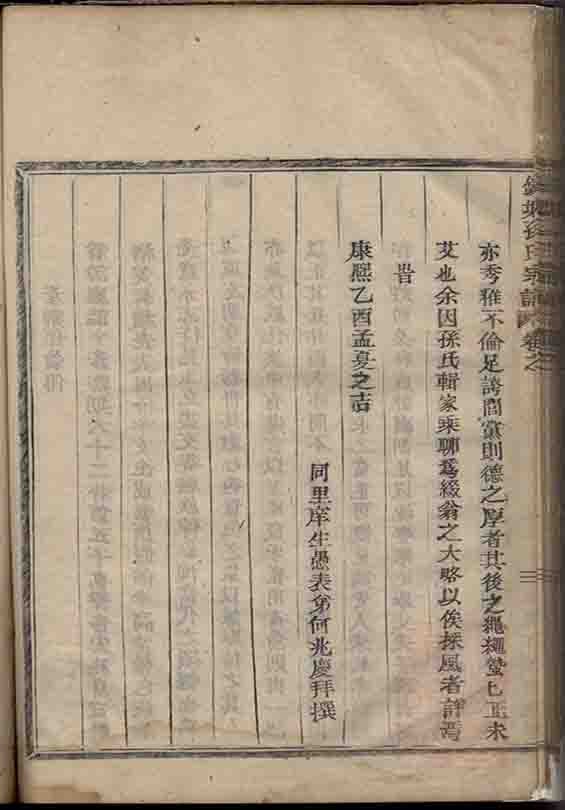 孫氏宗譜 卷之
亦秀雅不倫足誇閭黨則德之厚者其後之繩繩蟄匕正未
艾也余因孫氏輯家乘聊爲綴翁之大略以俟採風者詳焉
旹
康熙乙酉孟夏之吉
同里庠生愚表弟何兆慶拜撰